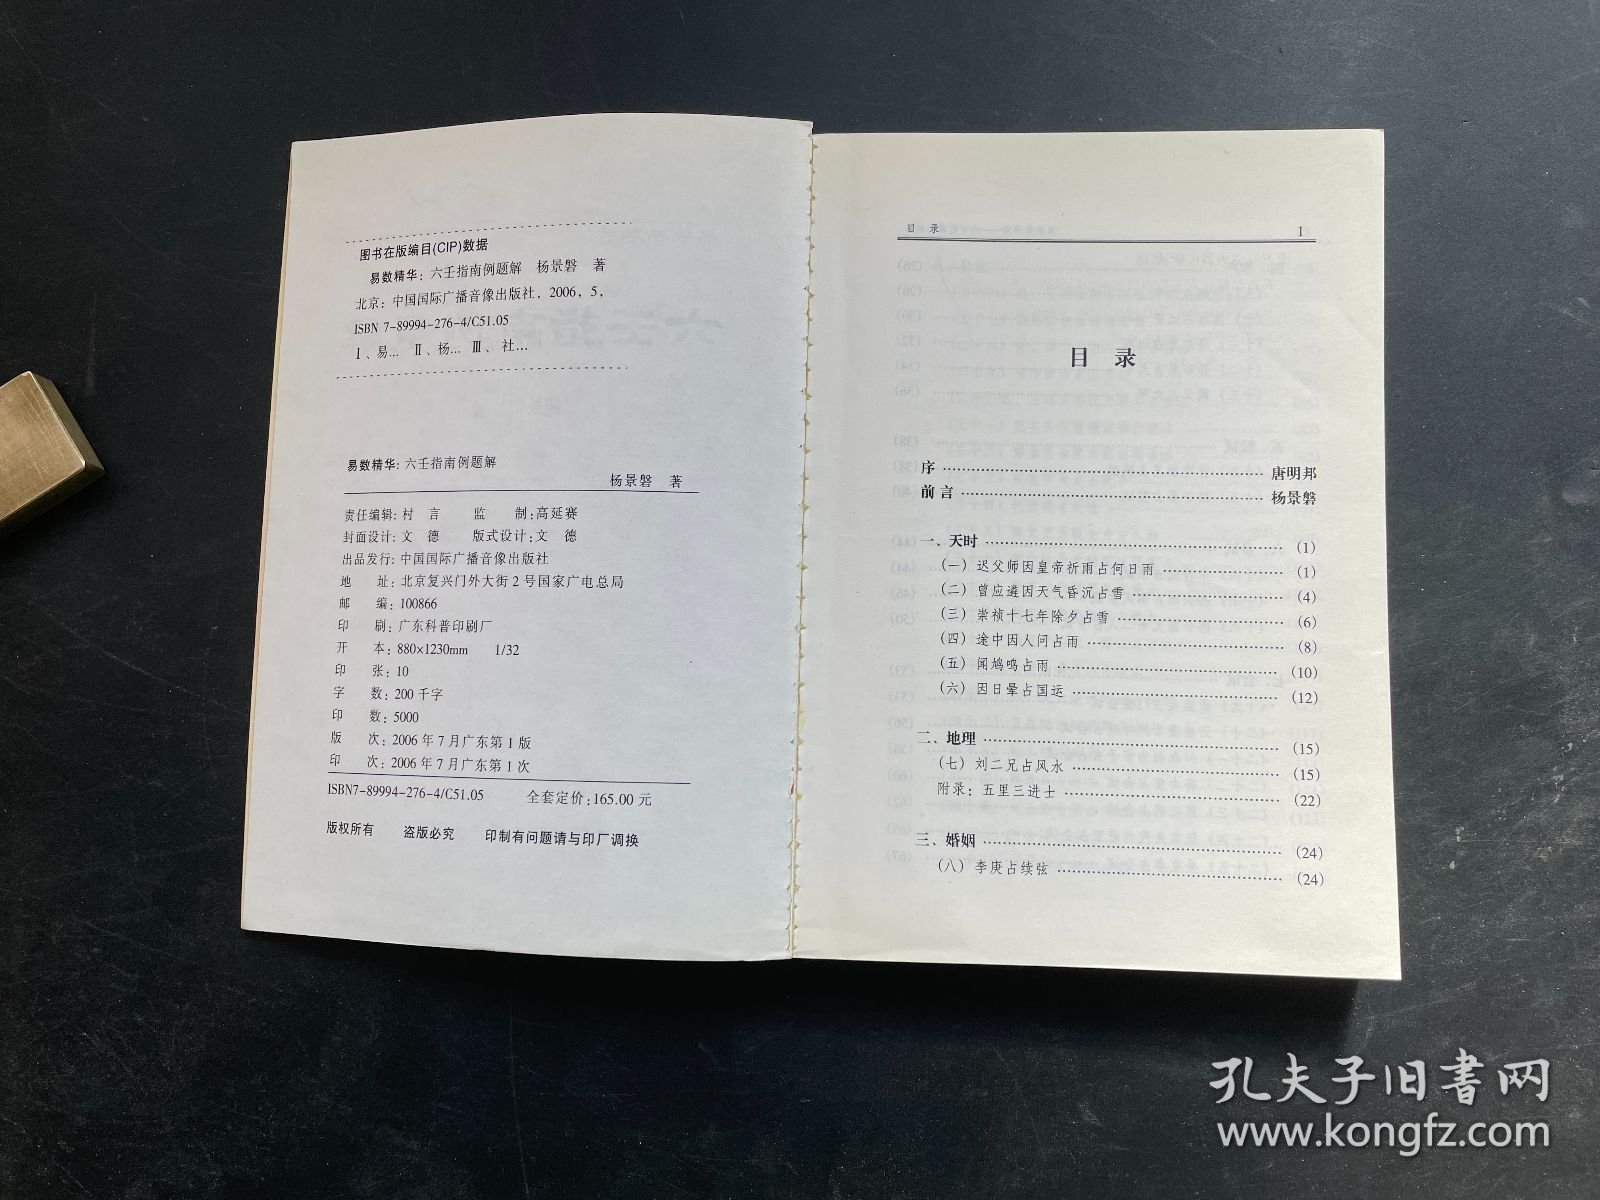 图书在版编目(CIP)数据
易数精华：六壬指南例题解 杨景磐 著
北京：中国国际广播音像出版社，2006，5，
ISBN 7-89994-276-4/C51.05
Ⅰ、易… Ⅱ、杨… Ⅲ、社…
易数精华：六壬指南例题解
杨景磐 著
责任编辑：村 言 监 制：高延赛
封面设计：文 德 版式设计：文 德
出品发行：中国国际广播音像出版社
地 址：北京复兴门外大街2号国家广电总局
邮 编：100866
印 刷：广东科普印刷厂
开 本：880×1230mm 1/32
印 张：10
字 数：200千字
印 数：5000
版 次：2006年7月广东第1版
印 次：2006年7月广东第1次
ISBN7-89994-276-4/C51.05 全套定价：165.00元
版权所有 盗版必究 印制有问题请与印厂调换
目 录 1
目 录
序……唐明邦
前言……杨景磐
一、天时……(1)
(一) 迟父师因皇帝祈雨占何日雨……(1)
(二) 曾应遴因天气昏沉占雪……(4)
(三) 崇祯十七年除夕占雪……(6)
(四) 途中因人问占雨……(8)
(五) 闻鸠鸣占雨……(10)
(六) 因日晕占国运……(12)
二、地理……(15)
(七) 刘二兄占风水……(15)
附录：五里三进士……(22)
三、婚姻……(24)
(八) 李庚占续弦……(24)
孔夫子旧书网
www.kongfz.com